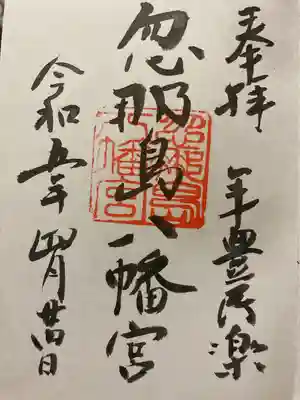 奉拝 年豊 楽
忽那島八幡宮
忽那島
八幡宮
令和五年 月 日